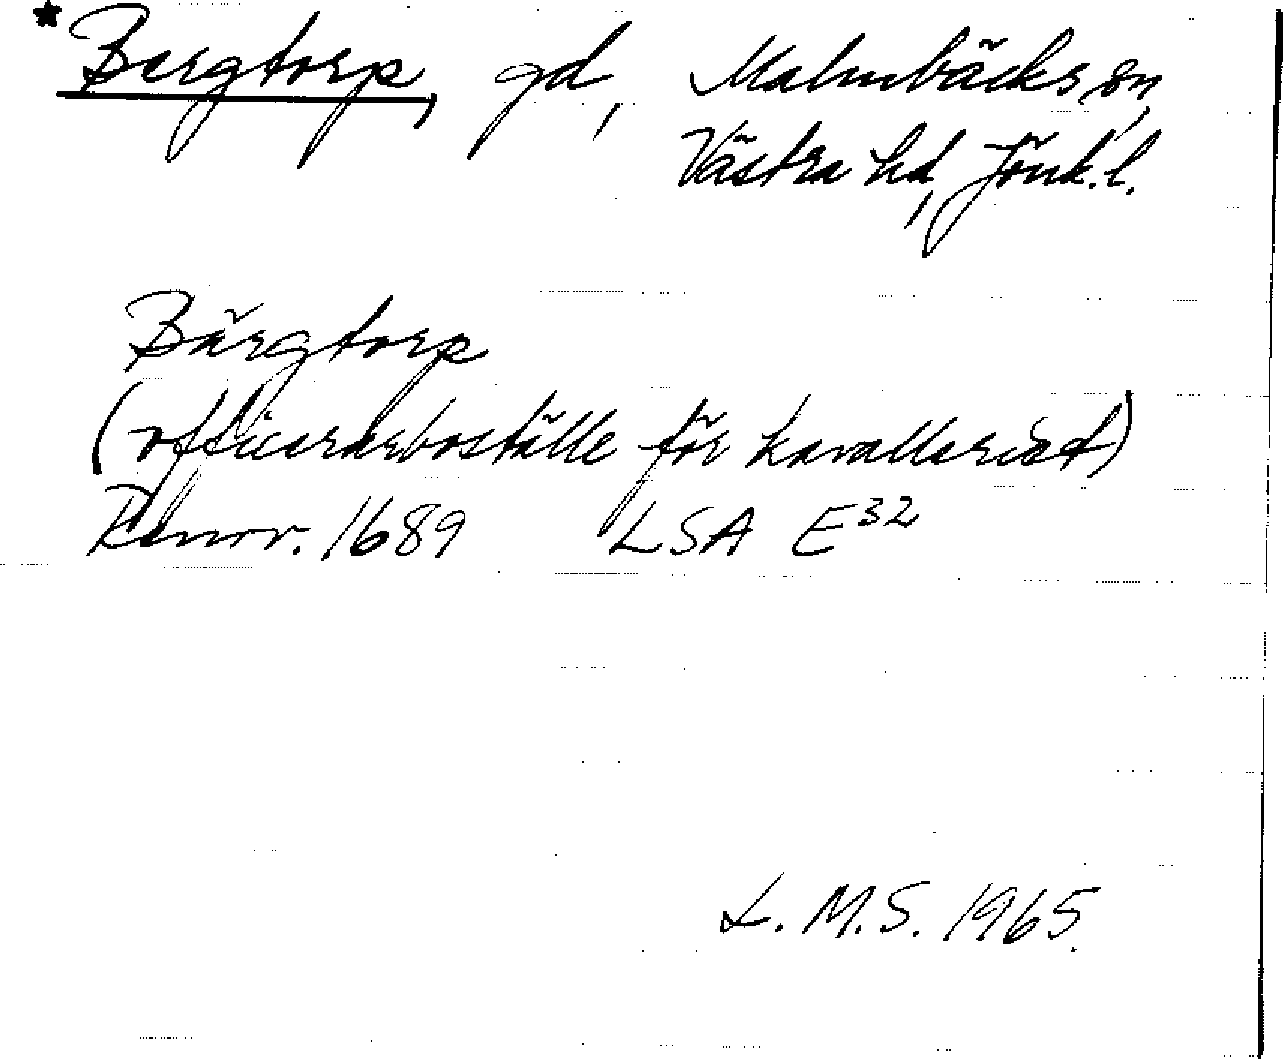 *Bergtorp, gd, Malmbäcks sn,
Västra hd, Jönk.l.
Bärgtorp
(officerarboställe för kavalleriet)
Renov. 1689 LSA E32
L.M.S. 1965.